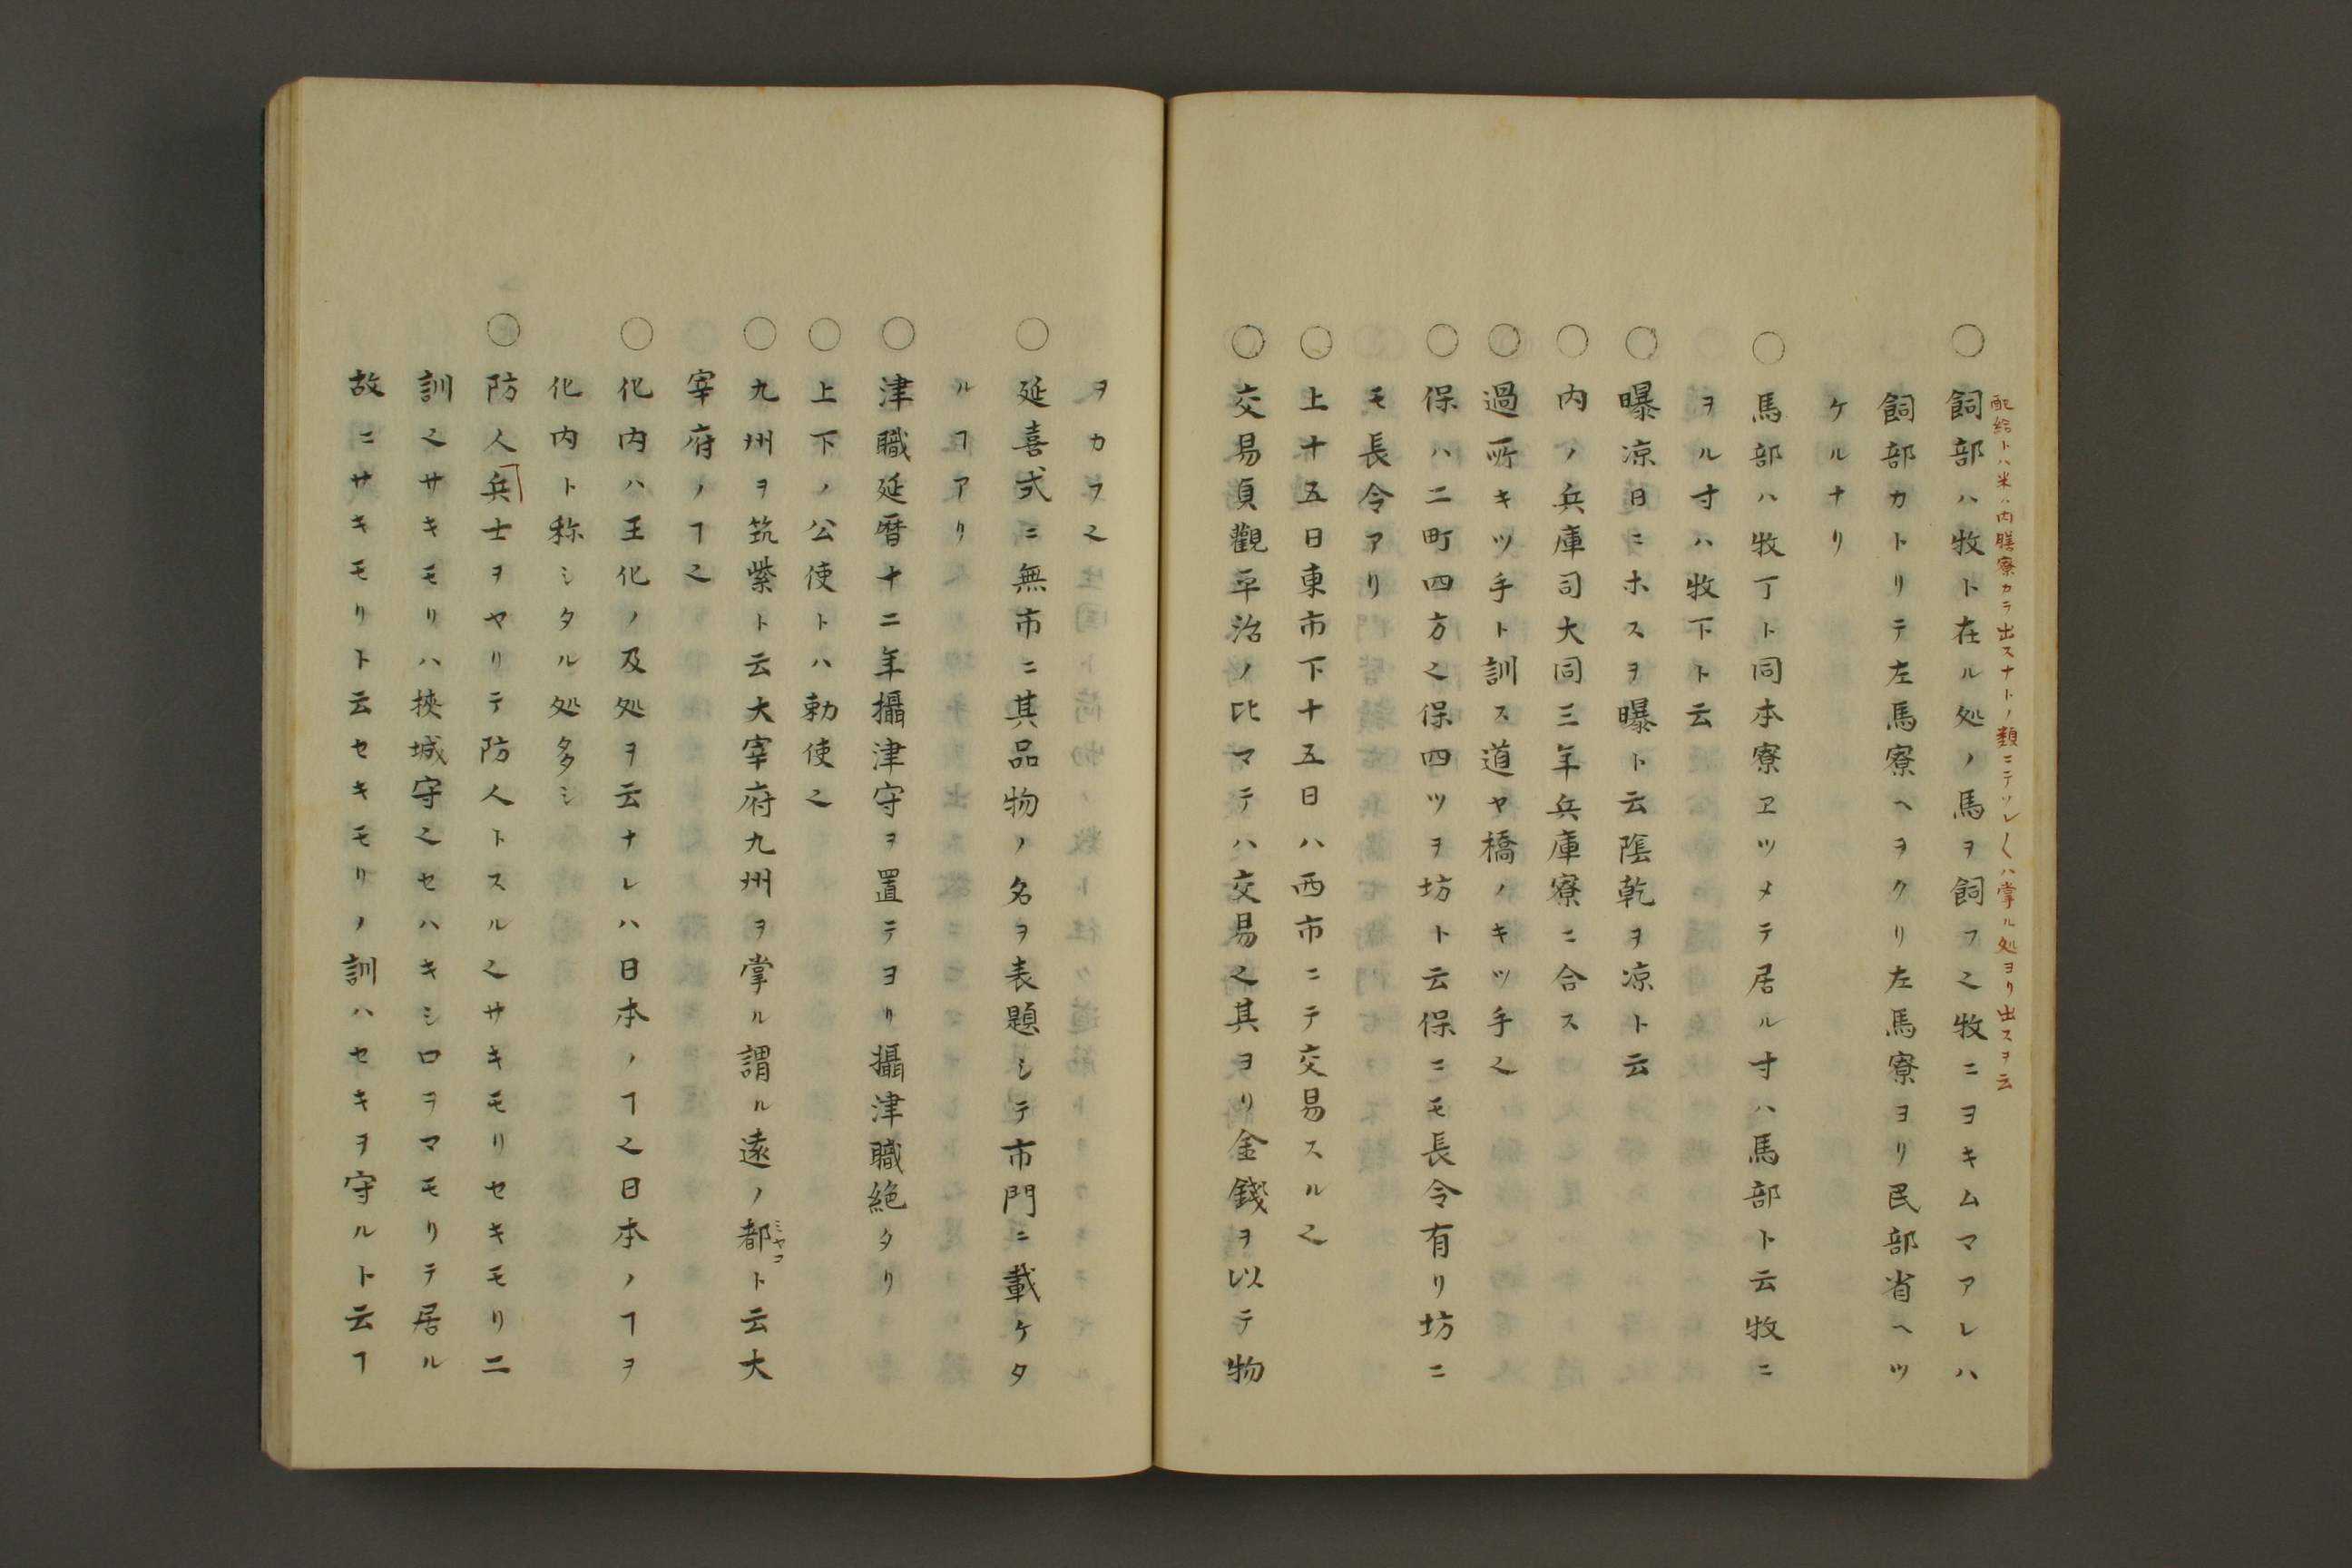 配給トハ米ハ内膳寮カラ出スナトノ類ニテソレ〱ハ掌ル処ヨリ出スヲ云
○飼部ハ牧ト在ル処ノ馬ヲ飼フ之牧ニヨキムマアレハ
飼部カトリテ左馬寮ヘヲクリ左馬寮ヨリ民部省ヘツ
ケルナリ
○馬部ハ牧丁ト同本寮ヱツメテ居ル寸ハ馬部ト云牧ニ
ヲル寸ハ牧下ト云
○曝凉日ニホスヲ曝ト云陰乾ヲ凉ト云
○内ノ兵庫司大同三年兵庫寮ニ合ス
○過所キツ手ト訓ス道ヤ橋ノキツ手之
○保ハ二町四方之保四ツヲ坊ト云保ニモ長令有リ坊ニ
モ長令アリ
○上十五日東市下十五日ハ西市ニテ交易スル之
○交易貞觀平治ノ比マテハ交易之其ヨリ金錢ヲ以テ物
ヲカフ之
○延喜式ニ無市ニ其品物ノ名ヲ表題シテ市門ニ載ケタ
ルヿアリ
○津職延暦十二年攝津守ヲ置テヨリ攝津職絶タリ
○上下ノ公使トハ勅使之
○九州ヲ筑紫ト云大宰府九州ヲ掌ル謂ル遠ノ都ミヤコト云大
宰府ノヿ之
○化内ハ王化ノ及処ヲ云ナレハ日本ノヿ之日本ノヿヲ
化内ト称シタル処多シ
○防人兵士ヲヤリテ防人トスル之サキモリセキモリ二
訓之サキモリハ挾城守之セハキシロヲマモリテ居ル
故ニサキモリト云セキモリノ訓ハセキヲ守ルト云ヿ